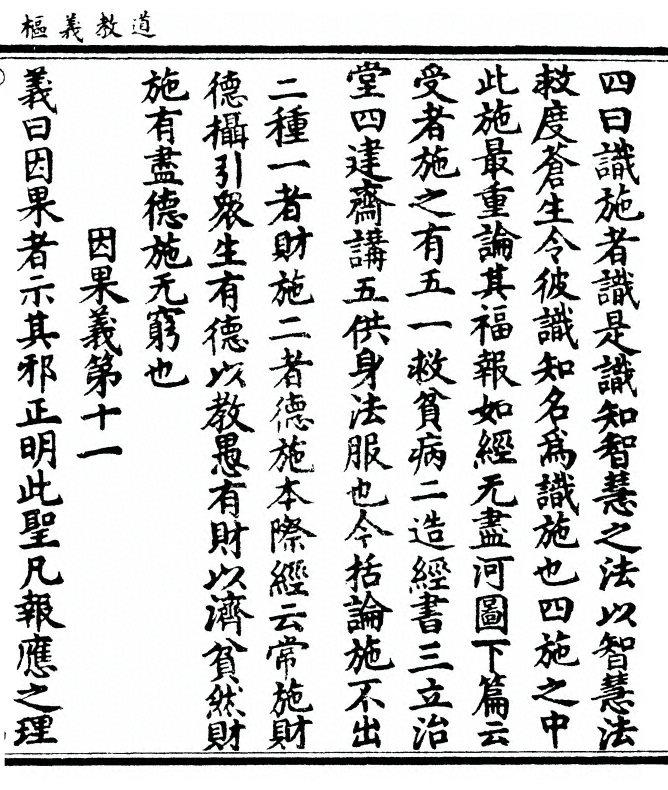 道教義樞
四曰識施者識是識知智慧之法以智慧法
救度蒼生令彼識知名爲識施也四施之中
此施最重論其福報如經无盡河圖下篇云
受者施之有五一救貧病二造經書三立治
堂四建齋講五供身法服也今括論施不出
二種一者財施二者德施本際經云常施財
德攝引衆生有德以教愚有財以濟貧然財
施有盡德施无窮也
因果義第十一
義曰因果者示其邪正明此聖凡報應之理